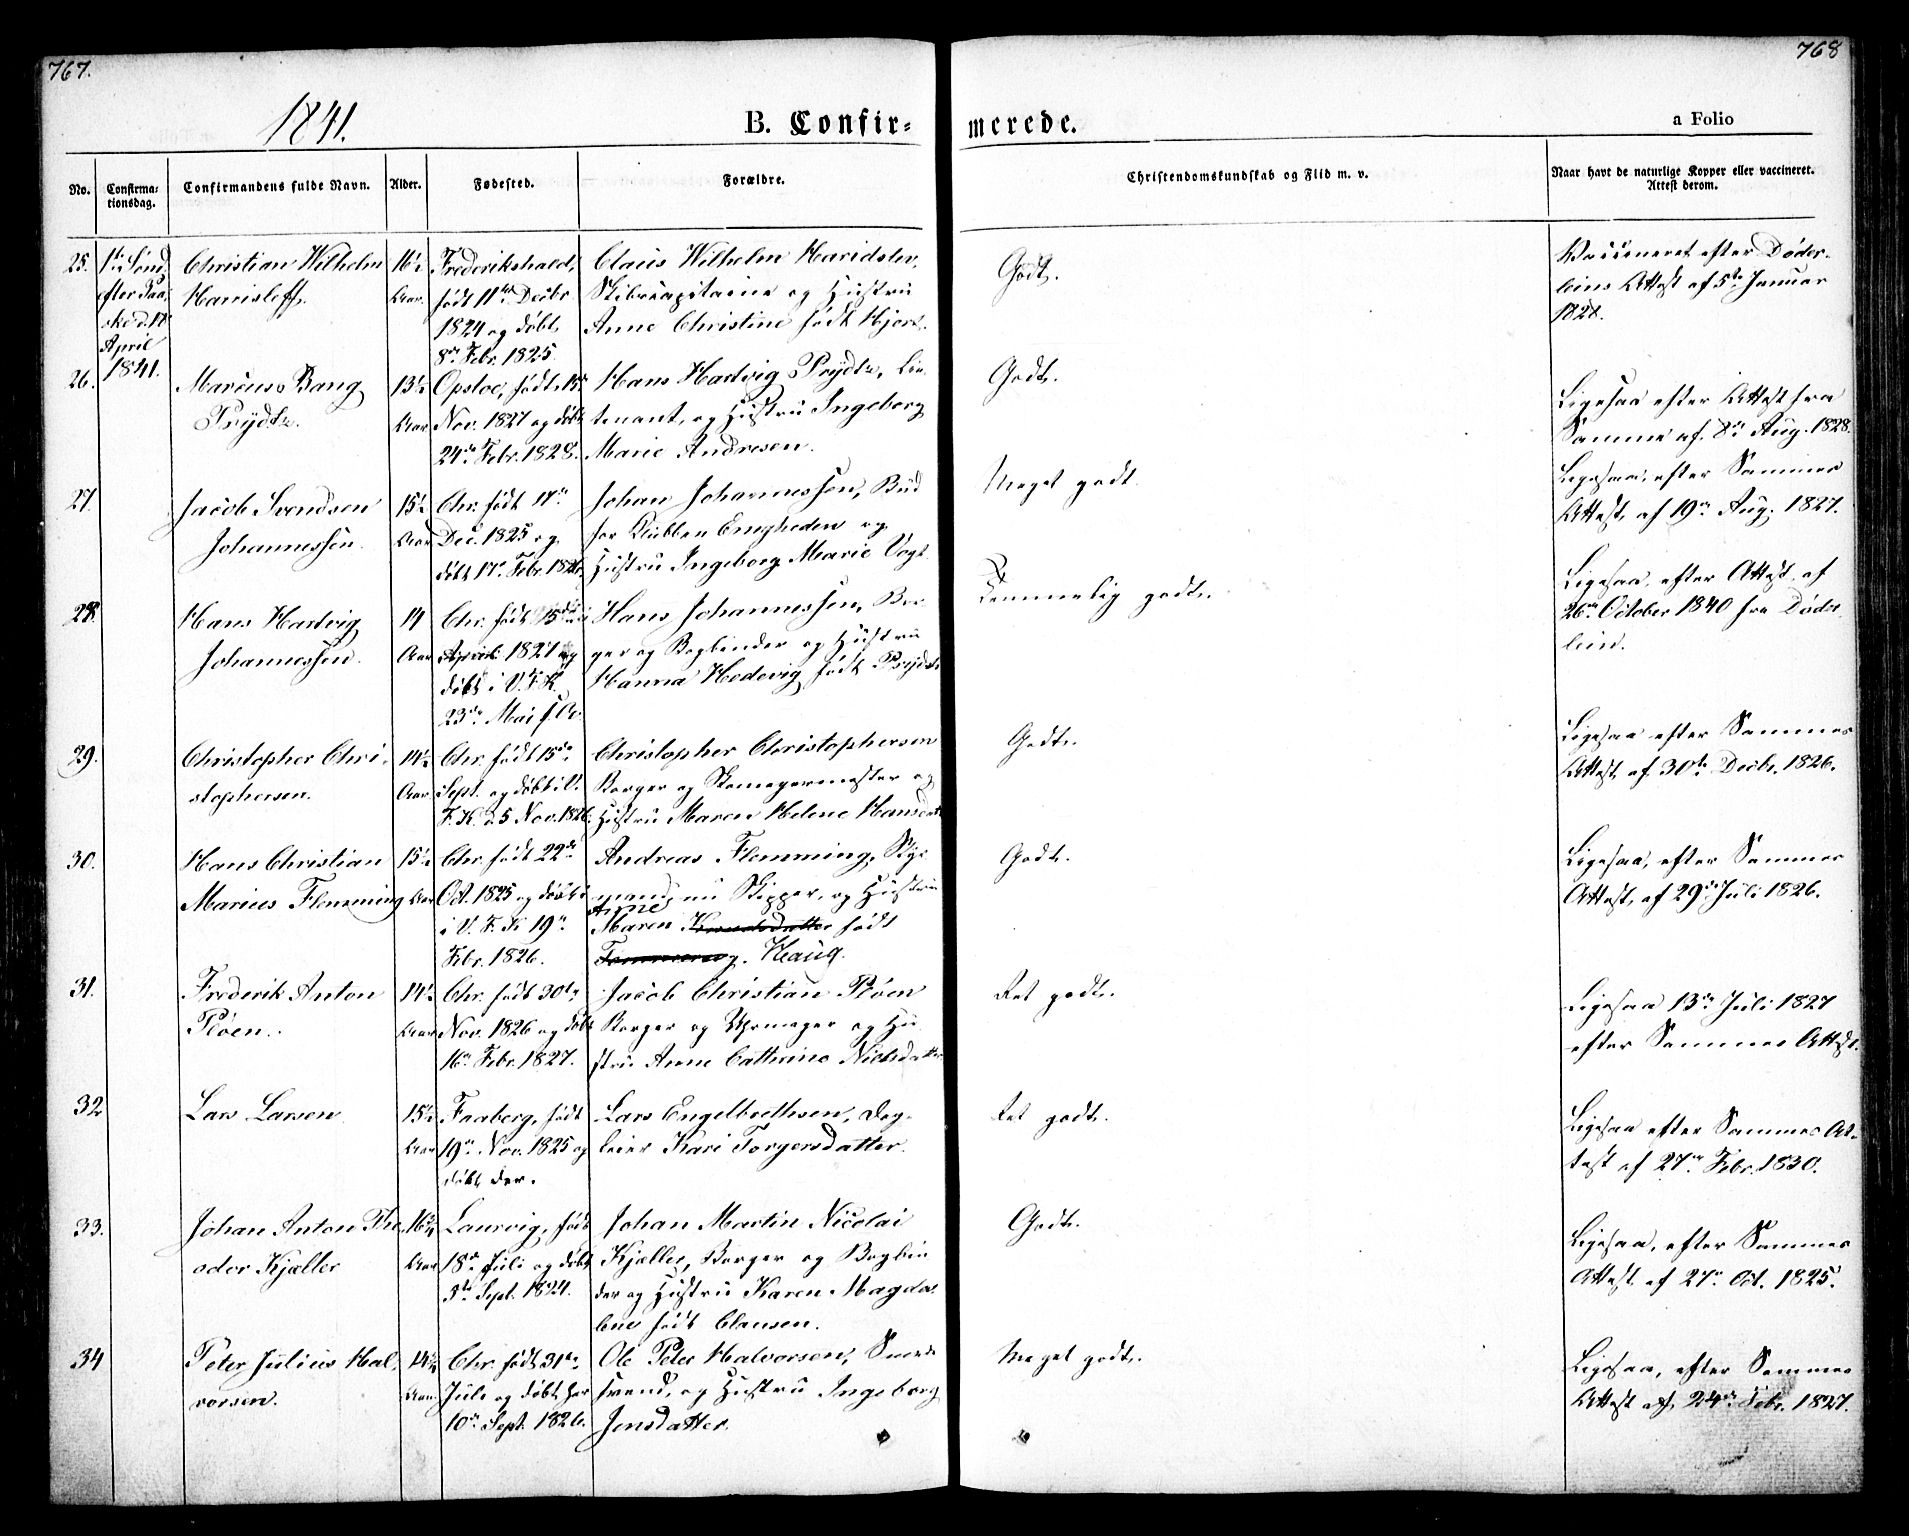 767.
768
1841.
B. Confir-
merede.
a Folio
No.
Confirma-
tionsdag.
Confirmandens fulde Navn.
Alder.
Fødested.
Forældre.
Christendomskundskab og Flid m. v.
Naar havt de naturlige Kopper eller vaccineret.
Attest derom.
25.
1ste Sønd.
efter Paa-
ske d. 18
April
1841.
Christian Wilhelm
Harrisleff.
16½
Aar.
Frederikshald,
født 11te Decbr
1824 og døbt
8de Febr. 1825.
Claus Wilhelm Haridslev,
Skibscapitaine og Hustru
Anne Christine født Hjort.
Godt.
Vaccineret efter Døder-
leins Attest af 5te Januar
1828.
26.
Marcus Bang
Prydtz.
13½
Aar
Opsloe, født 15de
Nov. 1827 og døbt
24de Febr. 1828.
Hans Hartvig Prydtz, Lieu-
tenant, og Hustru Ingeborg
Marie Andresen.
Godt.
Ligesaa efter Attest fra
Samme af 8de Aug. 1828.
27.
Jacob Svendsen
Johannessen.
15½
Aar
Chr. født 17de
Dec. 1825 og
døbt 17de Febr. 1826.
Johan Johannessen, Bud
for Klubben Enigheden og
Hustru Ingeborg Marie Vogt.
Meget godt.
Ligesaa, efter Sammes
Attest, af 19de Aug. 1827.
28.
Hans Hartvig
Johannessen.
14
Aar
Chr. født 15de
April 1827 og
døbt i V. F. K.
23de Mai s. A.
Hans Johannessen, Bor-
ger og Bogbinder og Hustru
Hanna Hedevig født Prydtz
Temmelig godt.
Ligesaa, efter Attest af
26de October 1840 fra Døder-
lein.
29.
Christopher Chri-
stophersen.
14½
Aar.
Chr. født 15de
Sept. og døbt i V.
F. K. d. 5 Nov. 1826.
Christopher Christophersen
Borger og Skomagermester og
Hustru Maren Helene Hansdatter
Godt.
Ligesaa efter Sammes
Attest af 30te Decbr. 1826.
30.
Hans Christian
Marius Flemming
15½
Aar
Chr. født 22de
Oct. 1825 og døbt
i V. F. K 19de
Febr. 1826.
Andreas Flemming, Styr-
mand, nu Skipper, og Hustru
Anne
Maren født
Haug.
Godt.
Ligesaa, efter Sammes
Attest, af 29de Juli 1826.
31.
Frederik Anton
Pløen.
14½
Aar
Chr. født 30te
Nov. 1826 og døbt
16de Febr. 1827.
Jacob Christian Pløen
Borger og Uhrmager og Hu-
stru Anne Cathrine Nielsdatter
Ret godt.
Ligesaa 13de Juli 1827
efter Sammes Attest.
32
Lars Larsen
15½
Aar
Faaberg, født
19de Nov. 1825 og
døbt der.
Lars Engelbrethsen, Dag-
leier Kari Torgersdatter.
Ret godt.
Ligesaa efter Sammes At-
test af 27de Febr. 1830.
33.
Johan Anton The-
odor Kjæller
16¾
Aar
Laurvig, født
18de Juli og døbt
3die Sept. 1824.
Johan Martin Nicolai
Kjæller, Borger og Bogbin
der og Hustru Karen Magda-
lene født Clausen.
Godt.
Ligesaa, efter Sammes
Attest af 27de Oct. 1825.
34
Peter Julius Hal-
vorsen.
14½
Aar.
Chr. født 31te
Juli og døbt her
10de Sept. 1826.
Ole Peter Halvorsen, Snedker
svend, og Hustru Ingeborg
Jensdatter.
Meget godt.
Ligesaa, efter Sammes
Attest af 24de Febr. 1827.